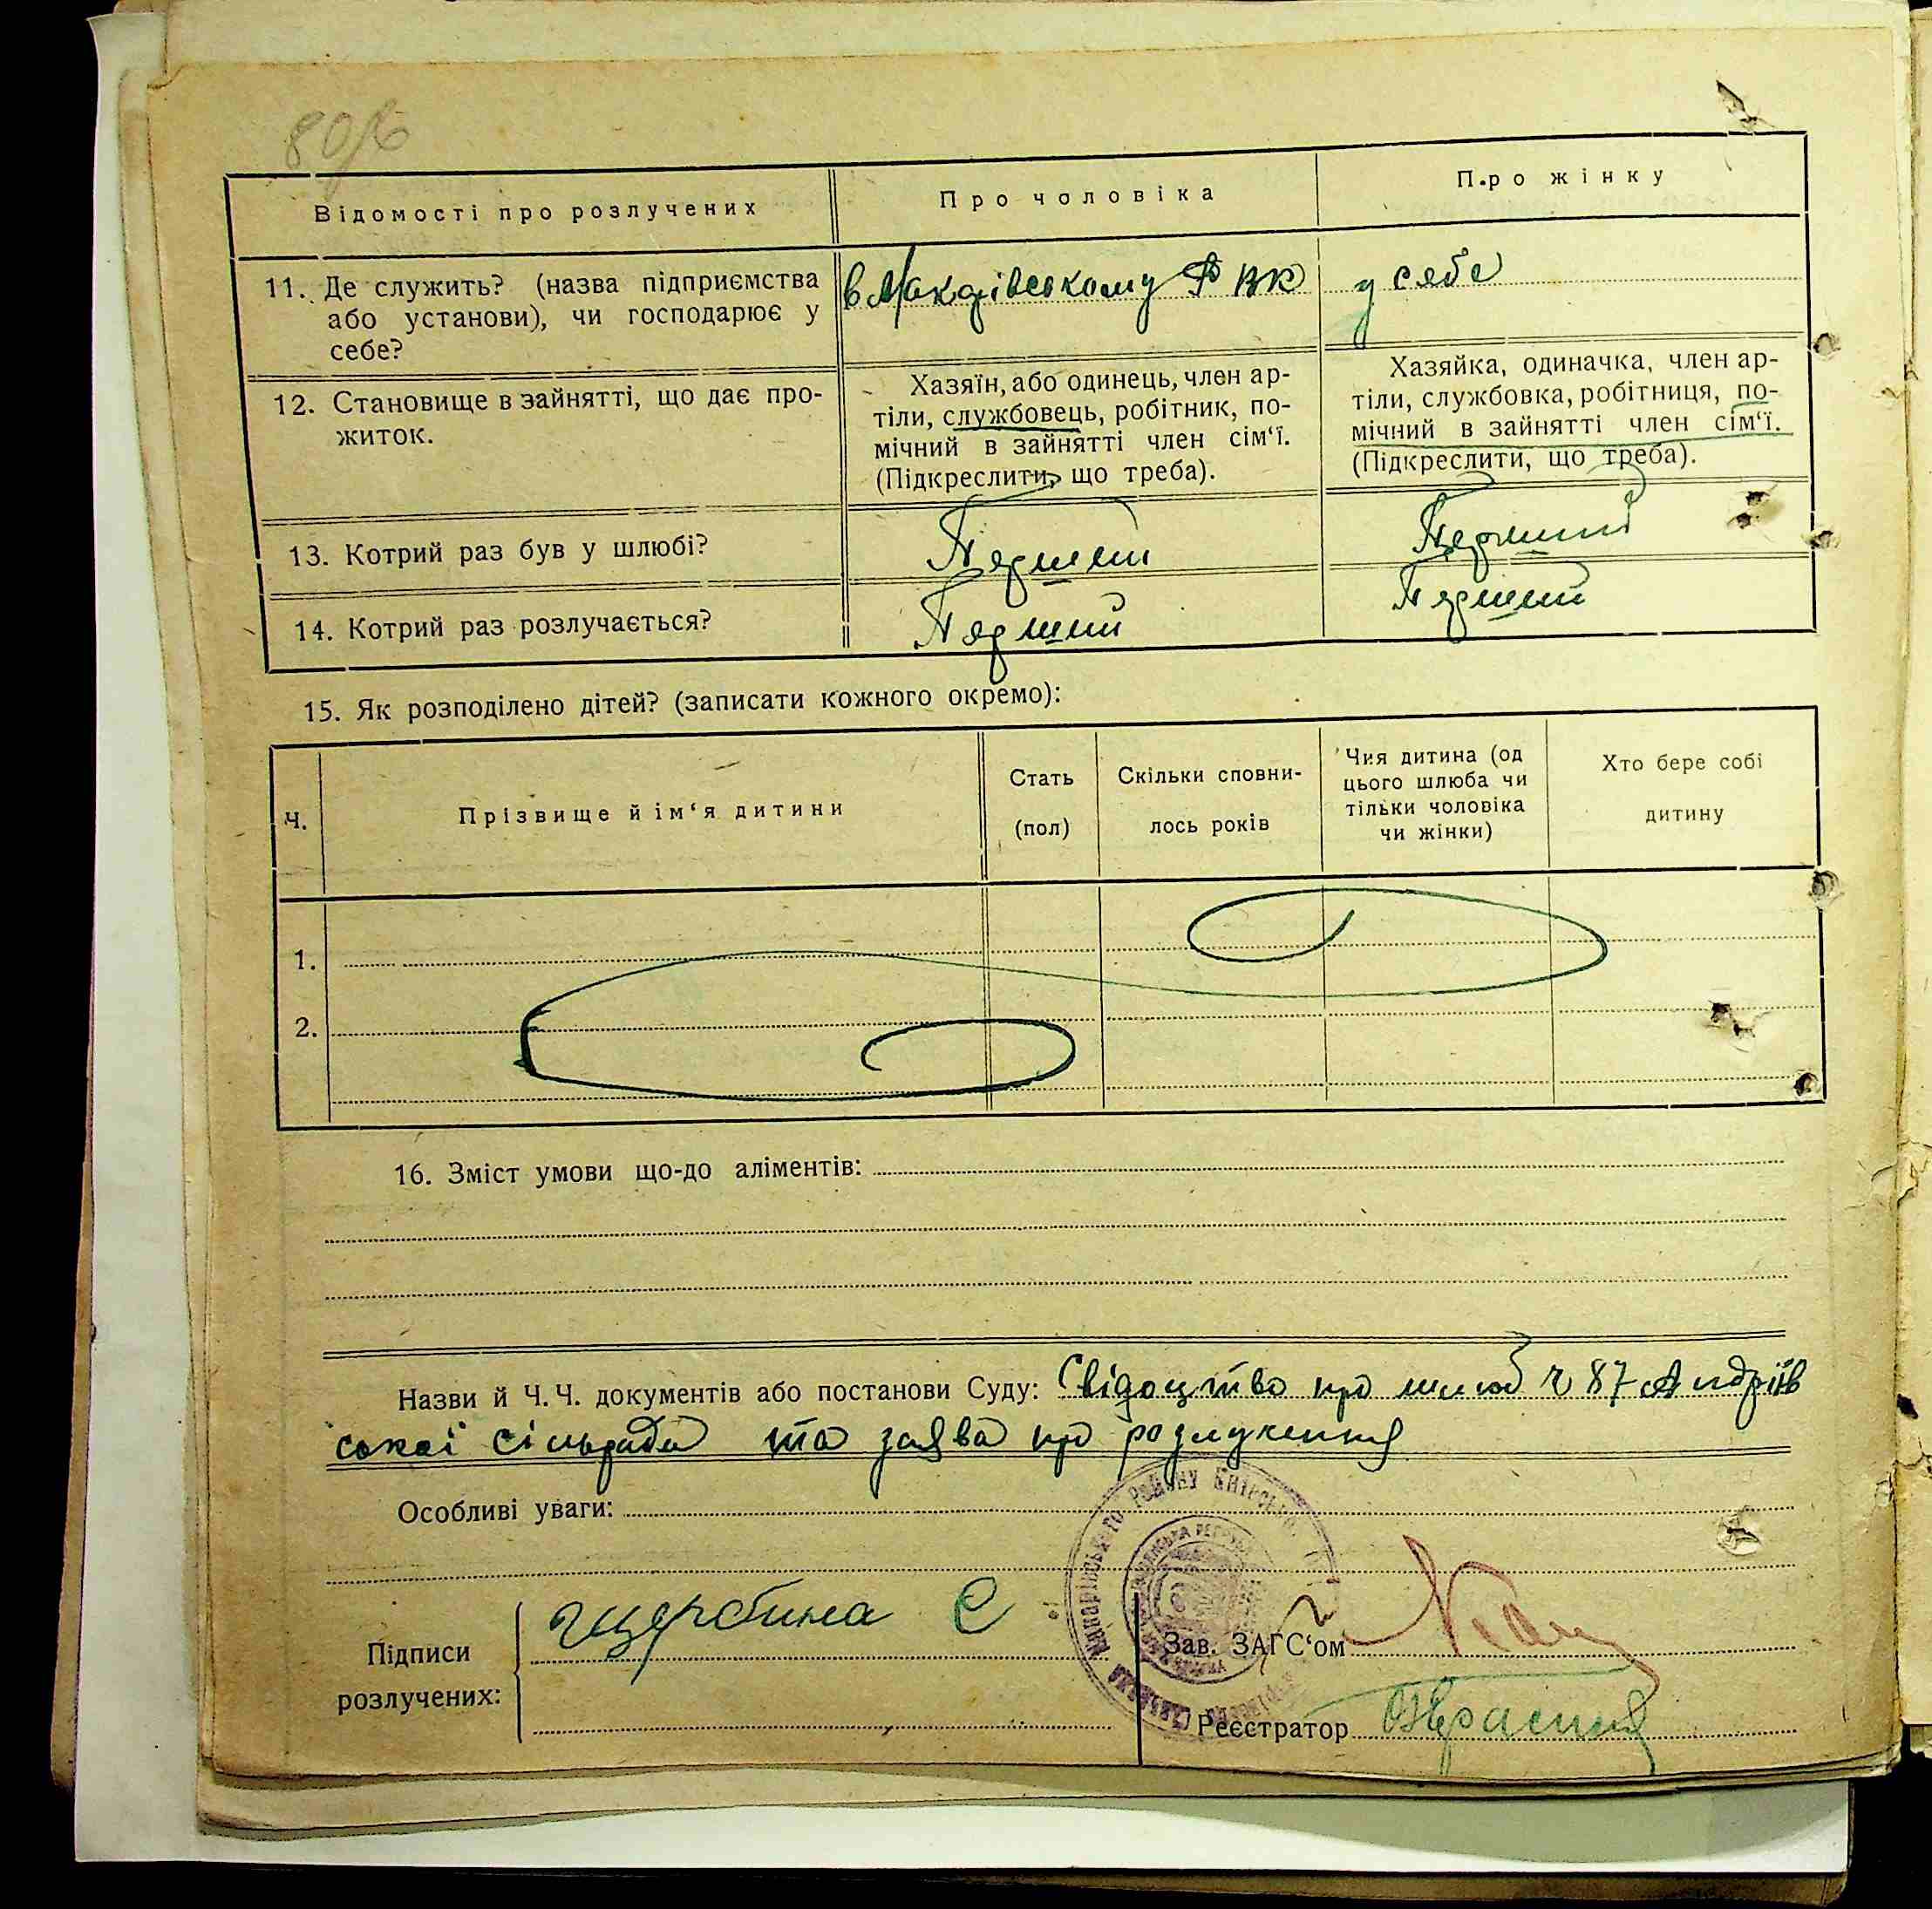 80/б
Відомості про розлучених
Про чоловіка
Про жінку
11. Де служить? (назва підприємства
або установи), чи господарює у
себе?
в Макарівському РВК
у себе
12. Становище в зайнятті, що дає про-
житок.
Хазяїн, або одинець, член ар-
тіли, службовець, робітник, по-
мічний в зайнятті член сім‘ї.
(Підкреслити, що треба).
Хазяйка, одиначка, член ар-
тіли, службовка, робітниця, по-
мічний в зайнятті член сім‘ї.
(Підкреслити, що треба).
13. Котрий раз був у шлюбі?
Перший
Перший
14. Котрий раз розлучається?
Перший
Перший
15. Як розподілено дітей? (записати кожного окремо):
Ч.
Прізвище й ім‘я дитини
Стать
(пол)
Скільки сповни-
лось років
Чия дитина (од
цього шлюба чи
тільки чоловіка
чи жінки)
Хто бере собі
дитину
1.
2.
16. Зміст умови що-до аліментів:
Назви й Ч.Ч. документів або постанови Суду: Свідоцтво про шлюб ч 87 Андріїв
ської сільради та заява про розлучення
Особливі уваги:
Підписи
розлучених:
Щербина Є
Зав. ЗАГС‘ом
Реєстратор
Макарівського району